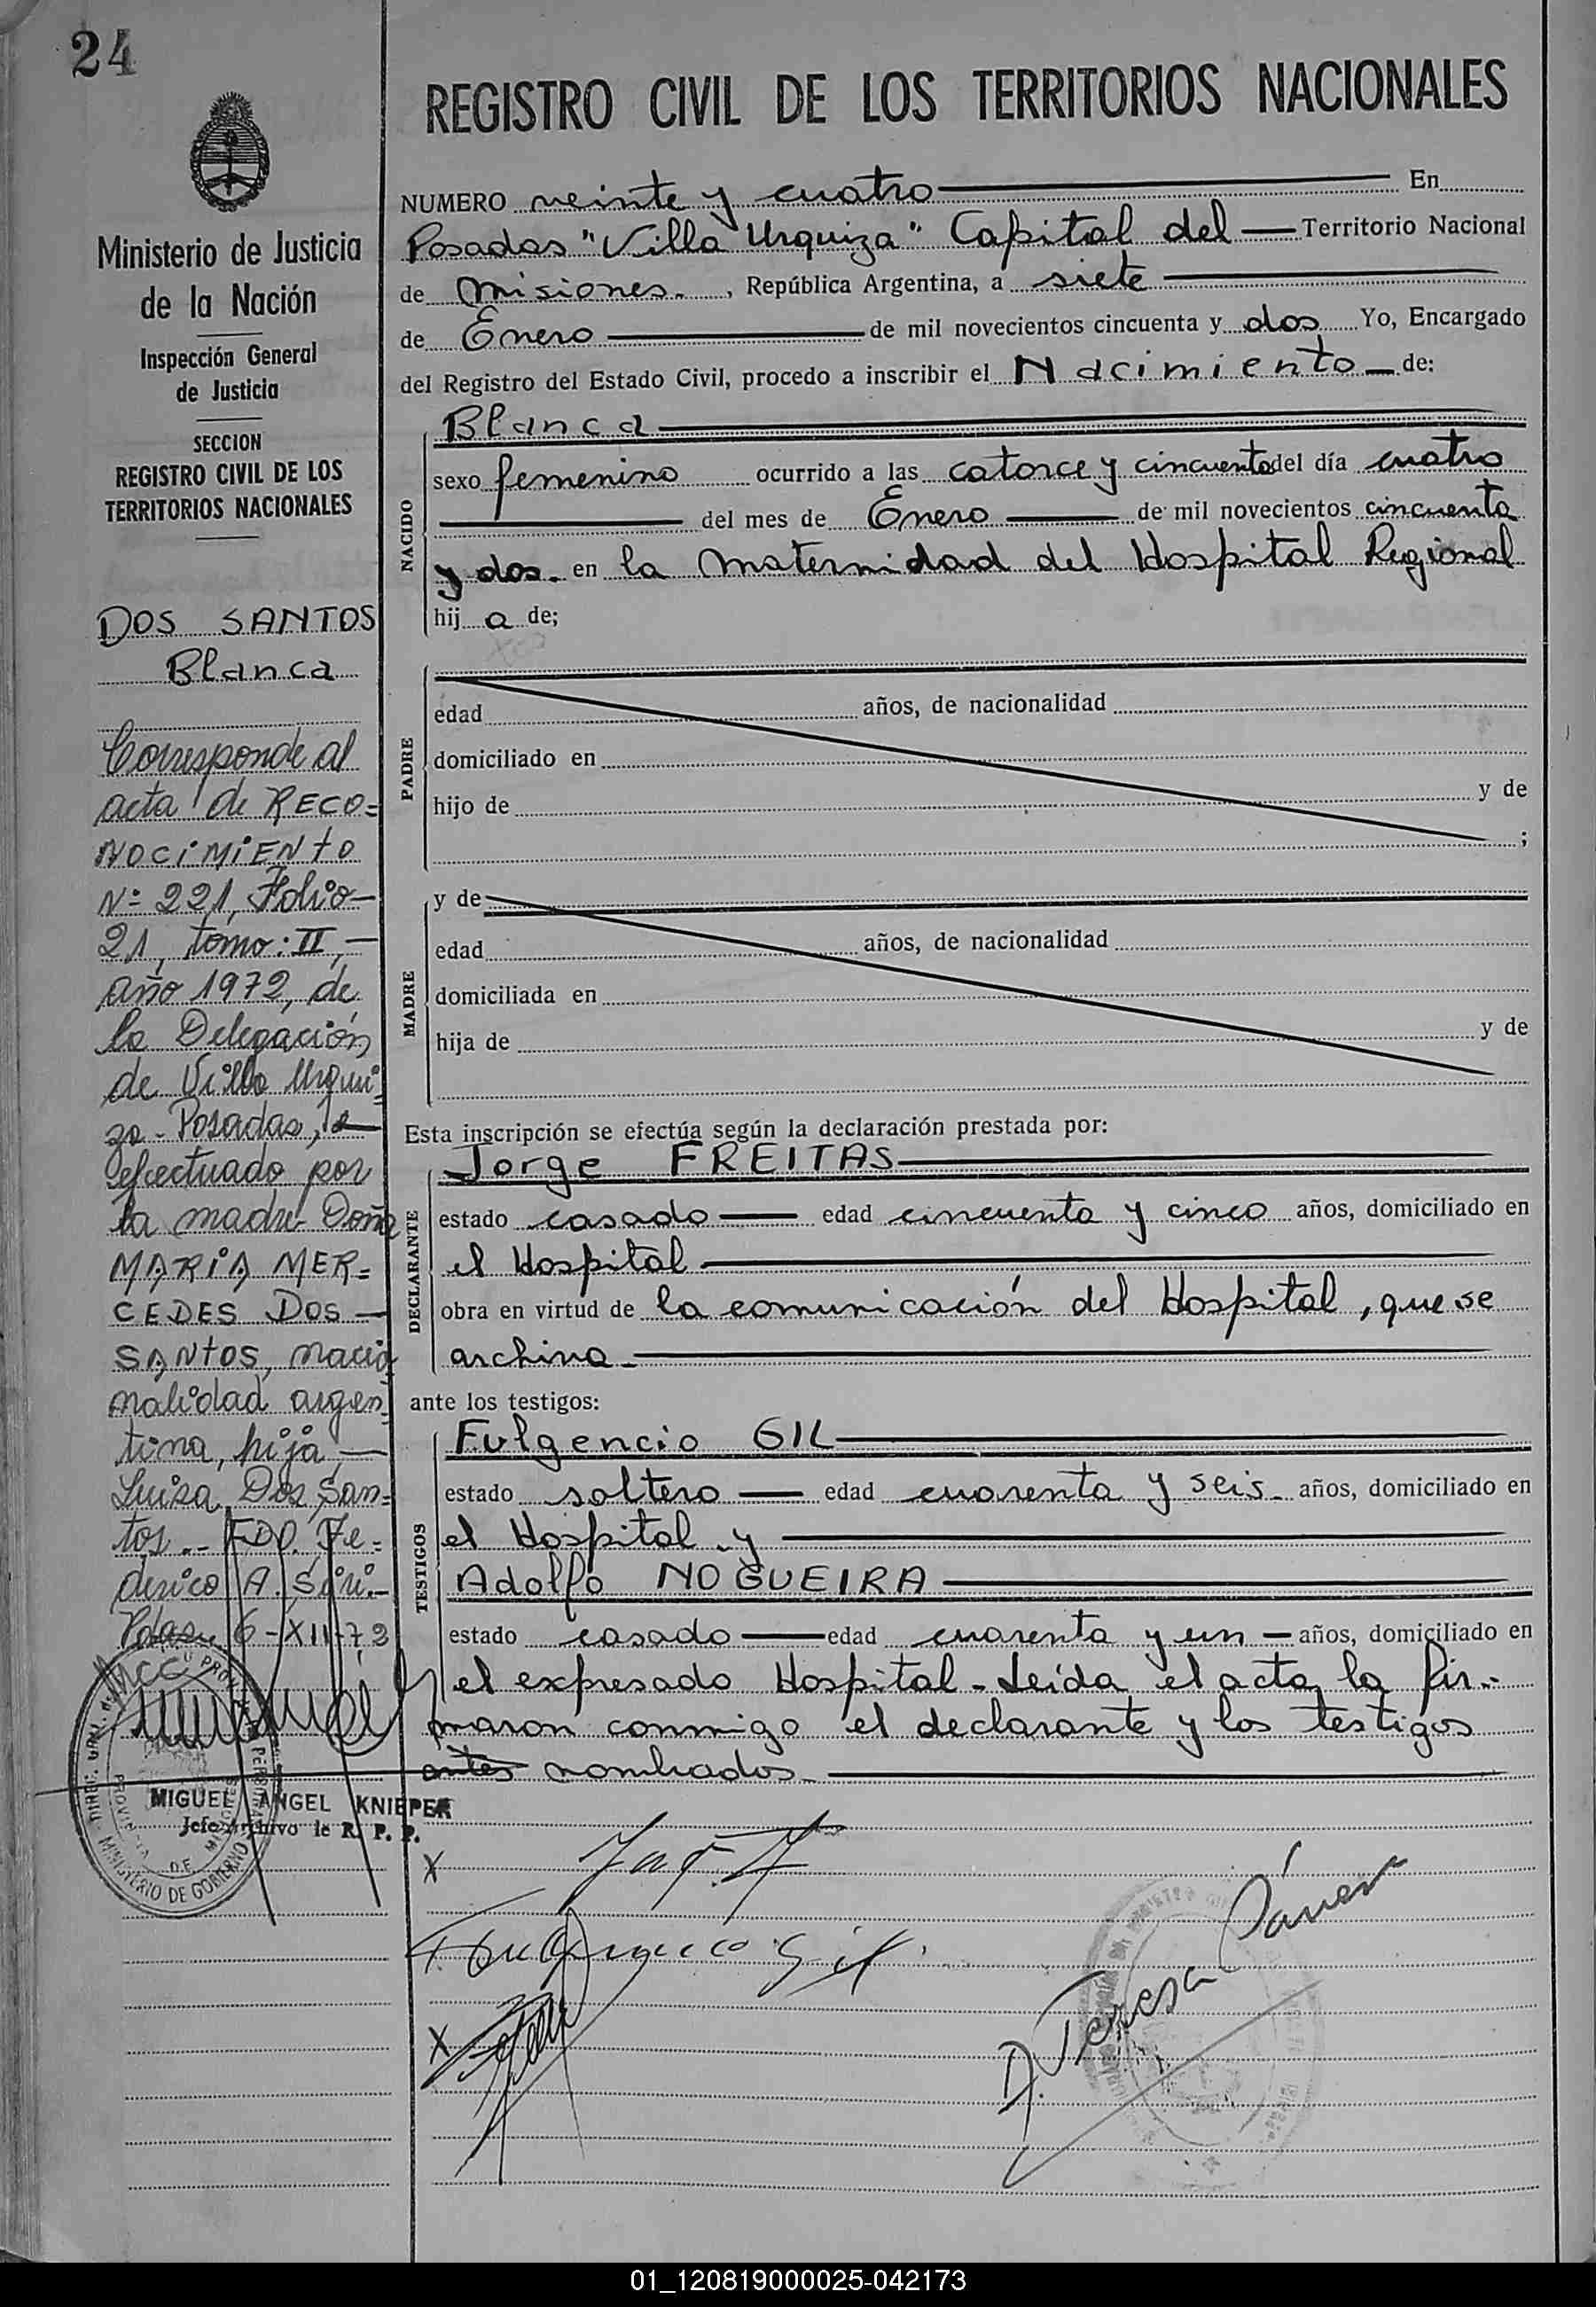 24
REGISTRO CIVIL DE LOS TERRITORIOS NACIONALES
Ministerio de Justicia
de la Nación
Inspección General
de Justicia
SECCION
REGISTRO CIVIL DE LOS
TERRITORIOS NACIONALES
DOS SANTOS
Blanca
Corresponde al
acta de RECO=
NOCIMIENTO
Nº 221, Folio-
21, tomo: II,-
año 1972, de
la Delegación
de Villa Urqui
za - Posadas,
efectuado por
la madre Doña
MARIA MER=
CEDES DOS -
SANTOS, nacio
nalidad argen
tina, hija -
Luisa Dos San=
tos.- FDO. Fe=
derico A.
Pdas., 6-XII-72
MIGUEL ANGEL KNIEPER
Jefe Archivo de R. P. P.
MINISTERIO DE GOBIERNO
NUMERO veinte y cuatro En
Posadas "Villa Urquiza" Capital del Territorio Nacional
de Misiones. , República Argentina, a siete
de Enero de mil novecientos cincuenta y dos Yo, Encargado
del Registro del Estado Civil, procedo a inscribir el Nacimiento de:
NACIDO
Blanca
sexo femenino ocurrido a las catorce y cincuenta del día cuatro
del mes de Enero de mil novecientos cincuenta
y dos. en la Maternidad del Hospital Regional
hij a de;
PADRE
edad años, de nacionalidad
domiciliado en
hijo de y de
;
MADRE
y de
edad años, de nacionalidad
domiciliada en
hija de y de
Esta inscripción se efectúa según la declaración prestada por:
DECLARANTE
Jorge FREITAS
estado casado edad cincuenta y cinco años, domiciliado en
el Hospital
obra en virtud de la comunicación del Hospital, que se
archiva
ante los testigos:
TESTIGOS
Fulgencio GIL
estado soltero edad cuarenta y seis años, domiciliado en
el Hospital y
Adolfo NOGUEIRA
estado casado edad cuarenta y un años, domiciliado en
el expresado Hospital - Leída el acta, la fir-
maron conmigo el declarante y los testigos
antes nombrados
X
Gil
X
Teresa
01_120819000025-042173